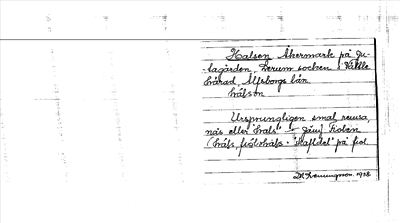 Halsen Åkermark på Ju-
lagården, Lerum socken, Vättle
härad, Älfsborgs län.
hålson
Ursprungligen smal remsa,
näs eller "hals" – jämf
(hals, hals = "skaftdel" på fiol.
1938